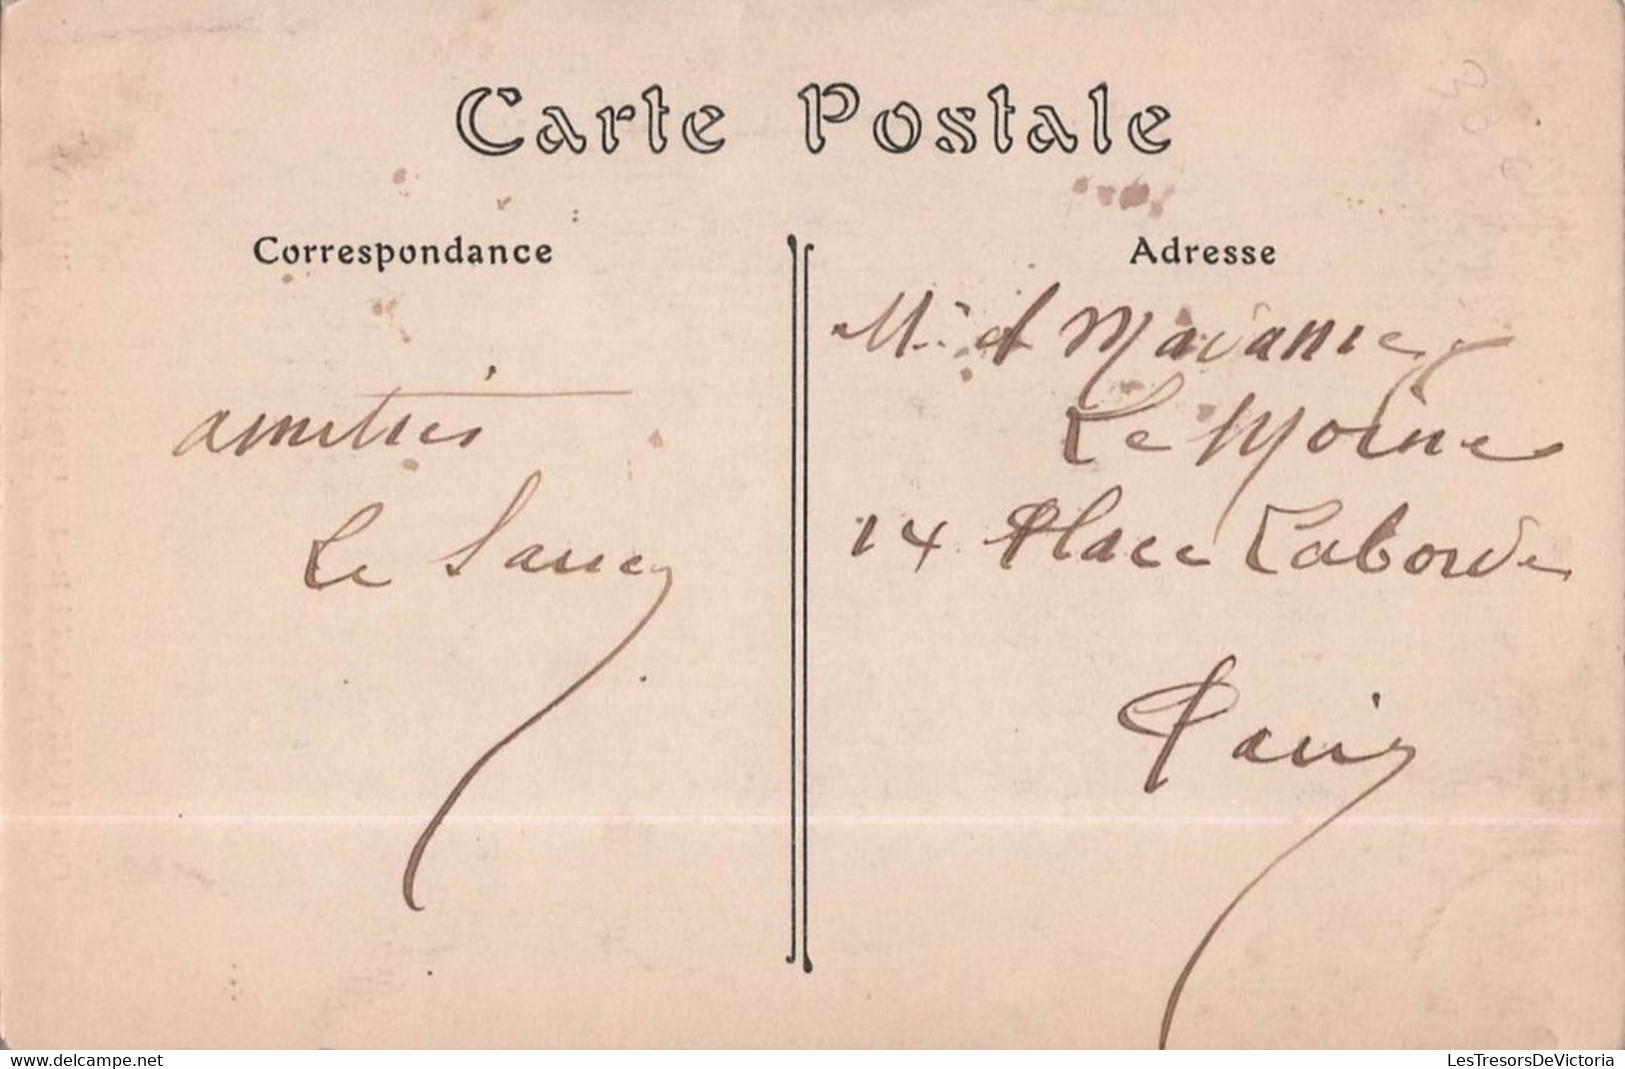 Carte Postale
Correspondance
Adresse
amitiés
Le
M. et Madame
Le Moine
14 Place Laborde
Paris
delcampe.net
LesTresorsDeVictoria